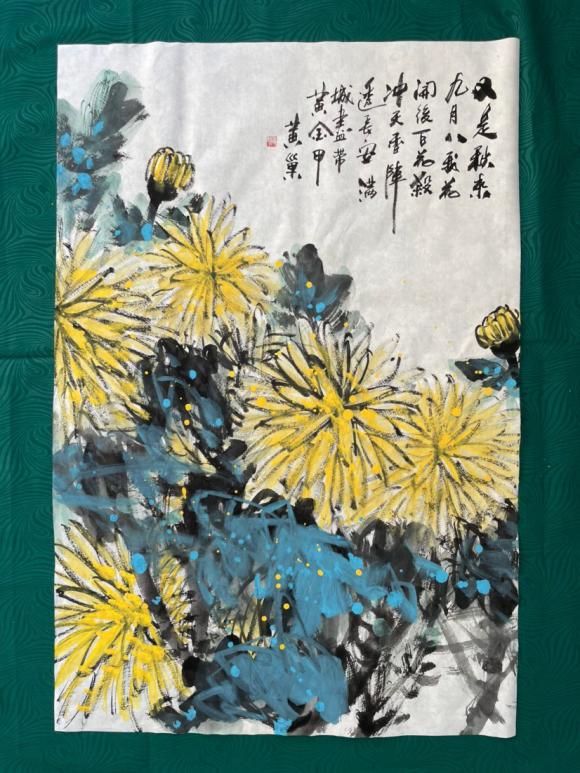 又是秋来
九月八我花
開後百花殺
冲天香陣
透長安满
城盡带
黄金甲
黄巢